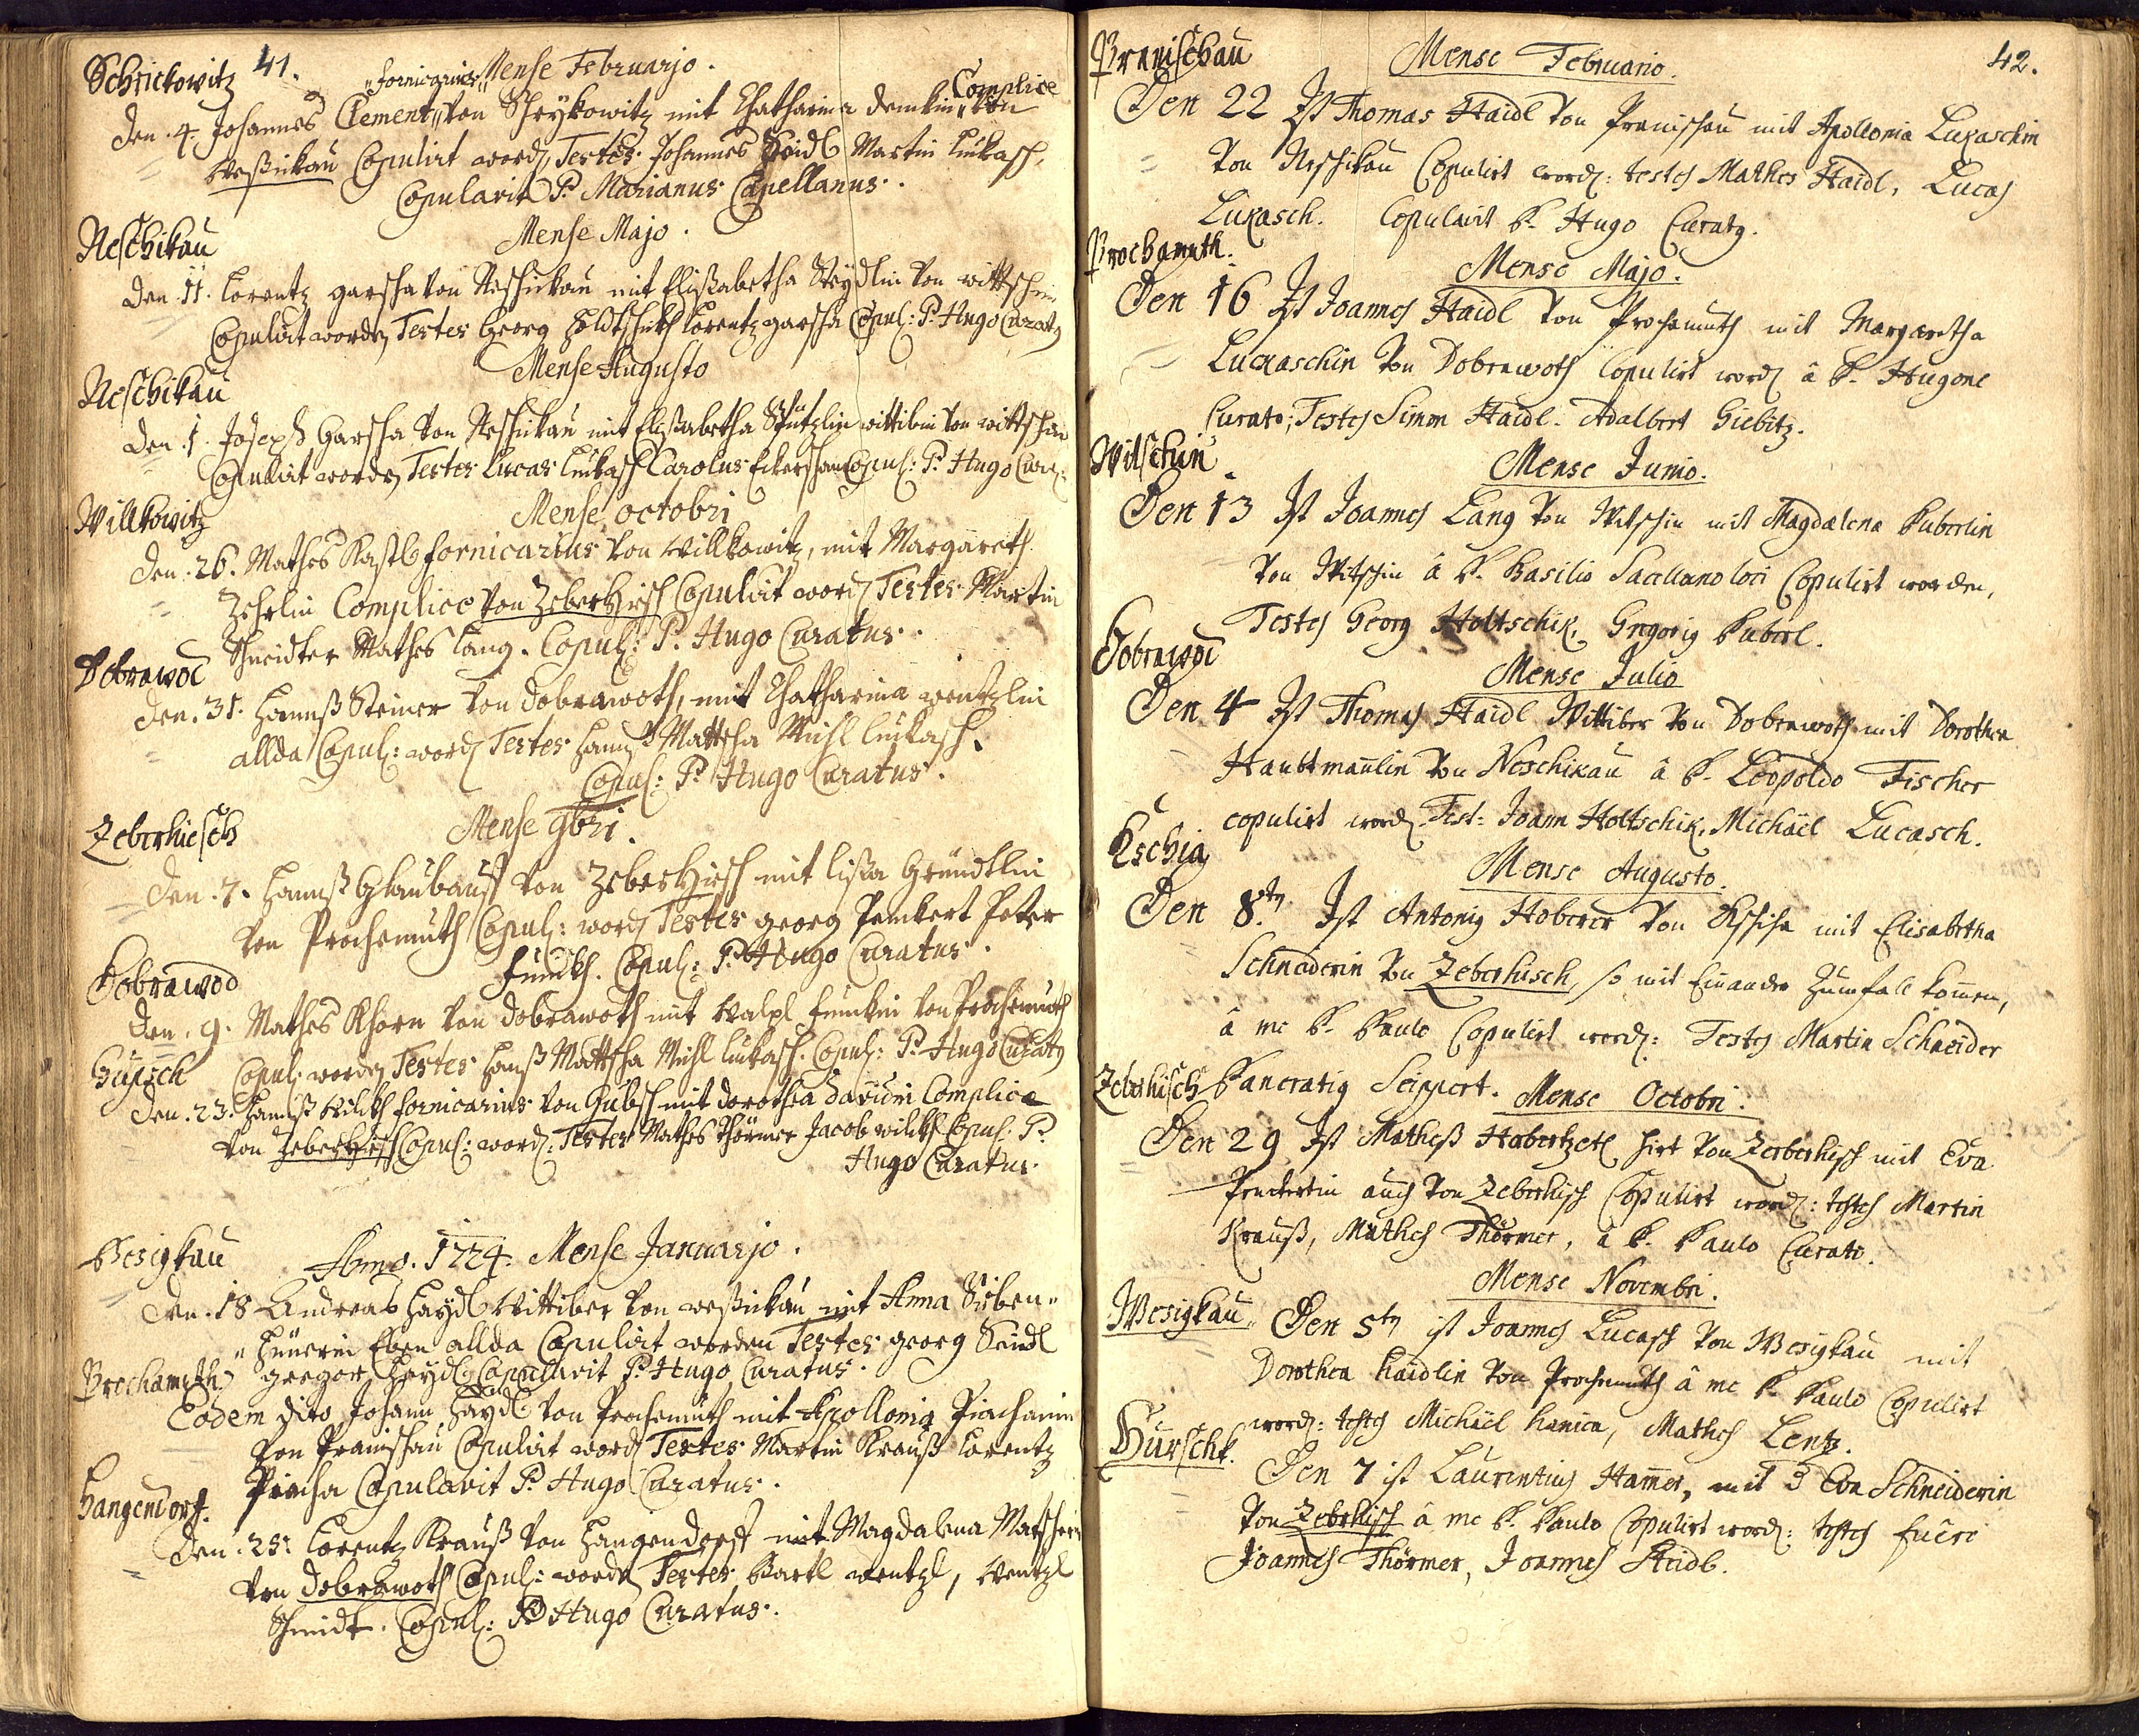 41.
Schrickowitz
Mense Februarjo.
den. 4. Johannes Clement „fornicarius„ von Schrykowitz mit Chatharina demkin „Complice von
Weßickau Copulirt word, Testes Johannes Heidl Martin Lukasch,
Copulavit P. Marianus Capellanus.
Neschikau
Mense Majo.
den. 11. Lorentz garscha von Neschikau mit Elißabetha von wittschin
Copulirt worden Testes Georg Holtschick Lorentz garscha Copul: P. Hugo Curatus
Neschikau
Mense Augusto
den. 1. Joseph Garscha von Neschikau mit Elißabetha wittibin von wittschin
Copulirt worden Testes Lucas Lukasch Carolus Copul: P. Hugo Cura:
Willkowitz
Mense octobri
den. 26. Mathes Kastl fornicarius von Willkowitz, mit Margareth
Zehrlin Complice von Zeberhisch Copulirt word Testes Martin
Schneidter Mathes Lang. Copul: P. Hugo Curatus.
Dobrawod
den. 31. Hannß Steiner von dobrawoth, mit Chatharina wentzlin
allda Copul: word Testes Hannß Mattscha Michl Luckasch.
Copul: P. Hugo Curatus.
Zeberhiesch
Mense 9bri.
den. 7. Hannß Glaubauf von Zeberhisch mit lißa Gründtlin
von Prochemuth Copul: word Testes georg Penkert Peter
Funckh. Copul: P. Hugo Curatus.
Dobrawod
den. 9. Mathes Khorn von dobrawoth mit Walpl funckin von Prochemuth
Copul: worden Testes Hanß Mattscha Michl Lukasch. Copul: P. Hugo Curatus
Gupsch
den. 23. Hannß Wilckh fornicarius von Gubsch mit dorothea davidin Complice
von Zeberhisch Copul: word: Testes Mathes Thörmer Jacob wilckh Copul: P.
Hugo Curatus.
Anno. 1724. Mense Januarjo.
Wesigkau
den. 18 Andreas Haydl Wittiber von weßickau mit Anna Sieben„
„hünerin Eben allda Copulirt worden Testes georg Seidl
gregor Heydl Copulavit P. Hugo Curatus.
Prochamuth
Eodem dito Johann Haydl von Prochemuth mit Apollonia Piachanin
von Pranischau Copulirt word Testes Martin Krauß Lorentz
Piacha Copulavit P. Hugo Curatus.
Hangendorf.
den. 25. Lorentz Krauß von Hangendorff mit Magdalena Matscherin
von dobrawoth Copul: worden Testes Bartl wentzl, Wentzl
Schmidt. Copul: P. Hugo Curatus.
42.
Pranischau
Mense Februario.
Den 22 Ist Thomas Haidl von Pranischau mit Apollonia Lukaschin
von Neschikau Copulirt word: testes Mathes Haidl, Lucas
Lukasch. Copulavit P. Hugo Curatus.
Prochamuth.
Mense Majo.
Den 16 Ist Joannes Haidl von Prochemuth mit Margaretha
Luckaschin von Dobrawoth Copulirt word â P. Hugone
Curato; Testes Simon Haidl. Adalbert Giebitz.
Witschin
Mense Junio.
Den 13 Ist Joannes Lang von Witschin mit Magdalena Kuberlin
von Witschin â P. Basilio Sacellano loci Copulirt worden,
Testes Georg Holtschik, Gregorius Kuberl.
Dobrawod
Mense Julio
Den 4 Ist Thomas Haidl Wittiber von Dobrawoth mit Dorothea
Haubtmanlin von Neschikau â P. Leopoldo Fischer
copulirt word. Test: Joann Holtschik, Michäel Lucasch.
Kschia
Mense Augusto.
Den 8.tn Ist Antonius Hoberer von mit Elisabetha
Schneiderin von Zeberhisch, so mit Einander Zumfall komen,
â me P. Paulo Copulirt word: Testes Martin Schneider
Pancratius Seippert.
Zeberhisch
Mense Octobri.
Den 29 Ist Matheß Habertzetl hirt von Zerberhisch mit Eva
auch von Zeberhisch Copulirt word: testes Martin
Krauß, Mathes Thörmer, â P. Paulo Curato.
Mense Novembri.
Wesigkau„
Den 5tn ist Joannes Lucasch von Wesigkau mit
Dorothea Haidlin von Prochemuth â me P. Paulo Copulirt
word: testes Michäel Hanica, Mathes Lentz.
Hurschk.
Den 7 ist Laurentius Hamer, mit Eva Schneiderin
von Zeberhisch â me P. Paulo Copulirt word: testes fuêre
Joannes Thörmer, Joannes Haidl.